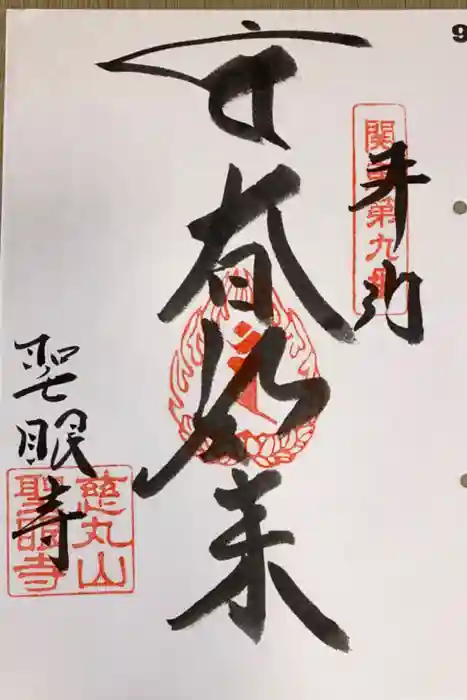 9
奉拝
関
第九番
大日如来
聖眼寺
慈丸山
聖眼寺